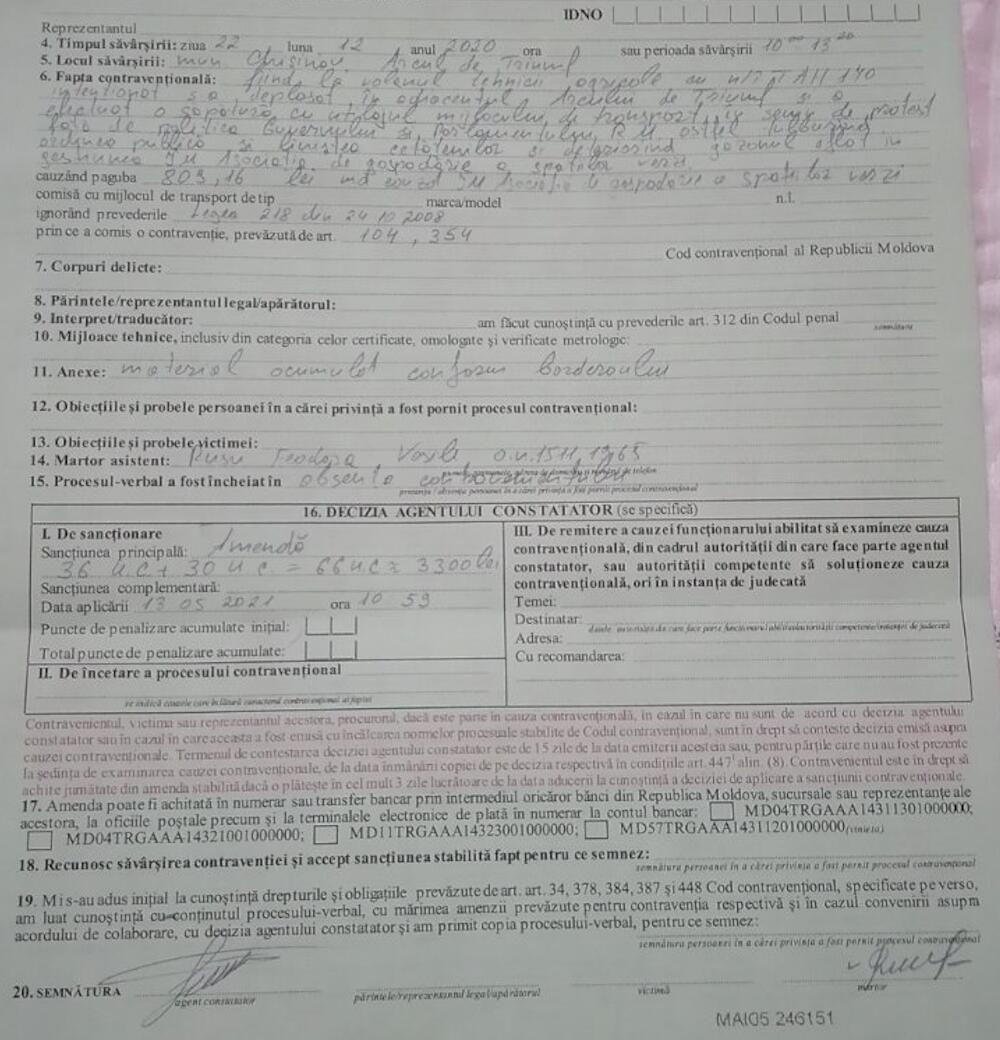 IDNO
Reprezentantul
4. Timpul săvârșirii: ziua 22 luna 12 anul 2020 ora sau perioada săvârșirii 10 00 13 20
5. Locul săvârșirii: mun. Chișinău Arcul de Triumf
6. Fapta contravențională: fiind la volanul tehnicii agricole cu n/î
intenționat s-a deplasat în adiacentul Arcului de Triumf și a
efectuat o săpătură cu utilajul mijlocului de transport, în semn de protest
față de politica Guvernului și Parlamentului R.M. astfel tulburînd
ordinea publică și liniștea cetățenilor și deteriorînd gazonul aflat în
gestiunea ÎM Asociația de gospodărie a spațiilor verzi
cauzând paguba 803,16 lei ÎM Asociația de gospodărie a spațiilor verzi
comisă cu mijlocul de transport de tip marca/model n.î.
ignorând prevederile Legea 218 din 24 10 2008
prin ce a comis o contravenție, prevăzută de art. 104, 354
Cod contravențional al Republicii Moldova
7. Corpuri delicte:
8. Părintele/reprezentantul legal/apărătorul:
9. Interpret/traducător: am făcut cunoștință cu prevederile art. 312 din Codul penal
semnătura
10. Mijloace tehnice, inclusiv din categoria celor certificate, omologate și verificate metrologic:
11. Anexe: material acumulat conform borderoului
12. Obiecțiile și probele persoanei în a cărei privință a fost pornit procesul contravențional:
13. Obiecțiile și probele victimei:
14. Martor asistent: Rusu Teodora, Vasile, a.n. 15 11 1965
15. Procesul-verbal a fost încheiat în absența contravenientului
prezența / absența persoanei în a cărei privință a fost pornit procesul contravențional
16. DECIZIA AGENTULUI CONSTATATOR (se specifică)
I. De sancționare
Sancțiunea principală: Amendă
36 u.c + 30 u.c. = 66 u.c = 3300 lei
Sancțiunea complementară:
Data aplicării 13 05 2021 ora 10 59
Puncte de penalizare acumulate inițial:
Total puncte de penalizare acumulate:
II. De încetare a procesului contravențional
se indică cauzele care înlătură caracterul contravențional al faptei
III. De remitere a cauzei funcționarului abilitat să examineze cauza
contravențională, din cadrul autorității din care face parte agentul
constatator, sau autorității competente să soluționeze cauza
contravențională, ori în instanța de judecată
Temei:
Destinatar:
datele autorității din care face parte funcționarul abilitat/autorității competente/instanței de judecată
Adresa:
Cu recomandarea:
Contravenientul, victima sau reprezentantul acestora, procurorul, dacă este parte în cauza contravențională, în cazul în care nu sunt de acord cu decizia agentului
constatator sau în cazul în care aceasta a fost emisă cu încălcarea normelor procesuale stabilite de Codul contravențional, sunt în drept să conteste decizia emisă asupra
cauzei contravenționale. Termenul de contestare a deciziei agentului constatator este de 15 zile de la data emiterii acesteia sau, pentru părțile care nu au fost prezente
la ședința de examinare a cauzei contravenționale, de la data înmânării copiei de pe decizia respectivă în condițiile art. 447¹ alin. (8). Contravenientul este în drept să
achite jumătate din amenda stabilită dacă o plătește în cel mult 3 zile lucrătoare de la data aducerii la cunoștință a deciziei de aplicare a sancțiunii contravenționale.
17. Amenda poate fi achitată în numerar sau transfer bancar prin intermediul oricăror bănci din Republica Moldova, sucursale sau reprezentanțe ale
acestora, la oficiile poștale precum și la terminalele electronice de plată în numerar la contul bancar: MD04TRGAAA14311301000000;
MD04TRGAAA14321001000000; MD11TRGAAA14323001000000; MD57TRGAAA14311201000000 (vinieta)
18. Recunosc săvârșirea contravenției și accept sancțiunea stabilită fapt pentru ce semnez:
semnătura persoanei în a cărei privință a fost pornit procesul contravențional
19. Mi s-au adus inițial la cunoștință drepturile și obligațiile prevăzute de art. art. 34, 378, 384, 387 și 448 Cod contravențional, specificate pe verso,
am luat cunoștință cu conținutul procesului-verbal, cu mărimea amenzii prevăzute pentru contravenția respectivă și în cazul convenirii asupra
acordului de colaborare, cu decizia agentului constatator și am primit copia procesului-verbal, pentru ce semnez:
semnătura persoanei în a cărei privință a fost pornit procesul contravențional
20. SEMNĂTURA
agent constatator părintele/reprezentantul legal/apărătorul victimă martor
MAI05 246151